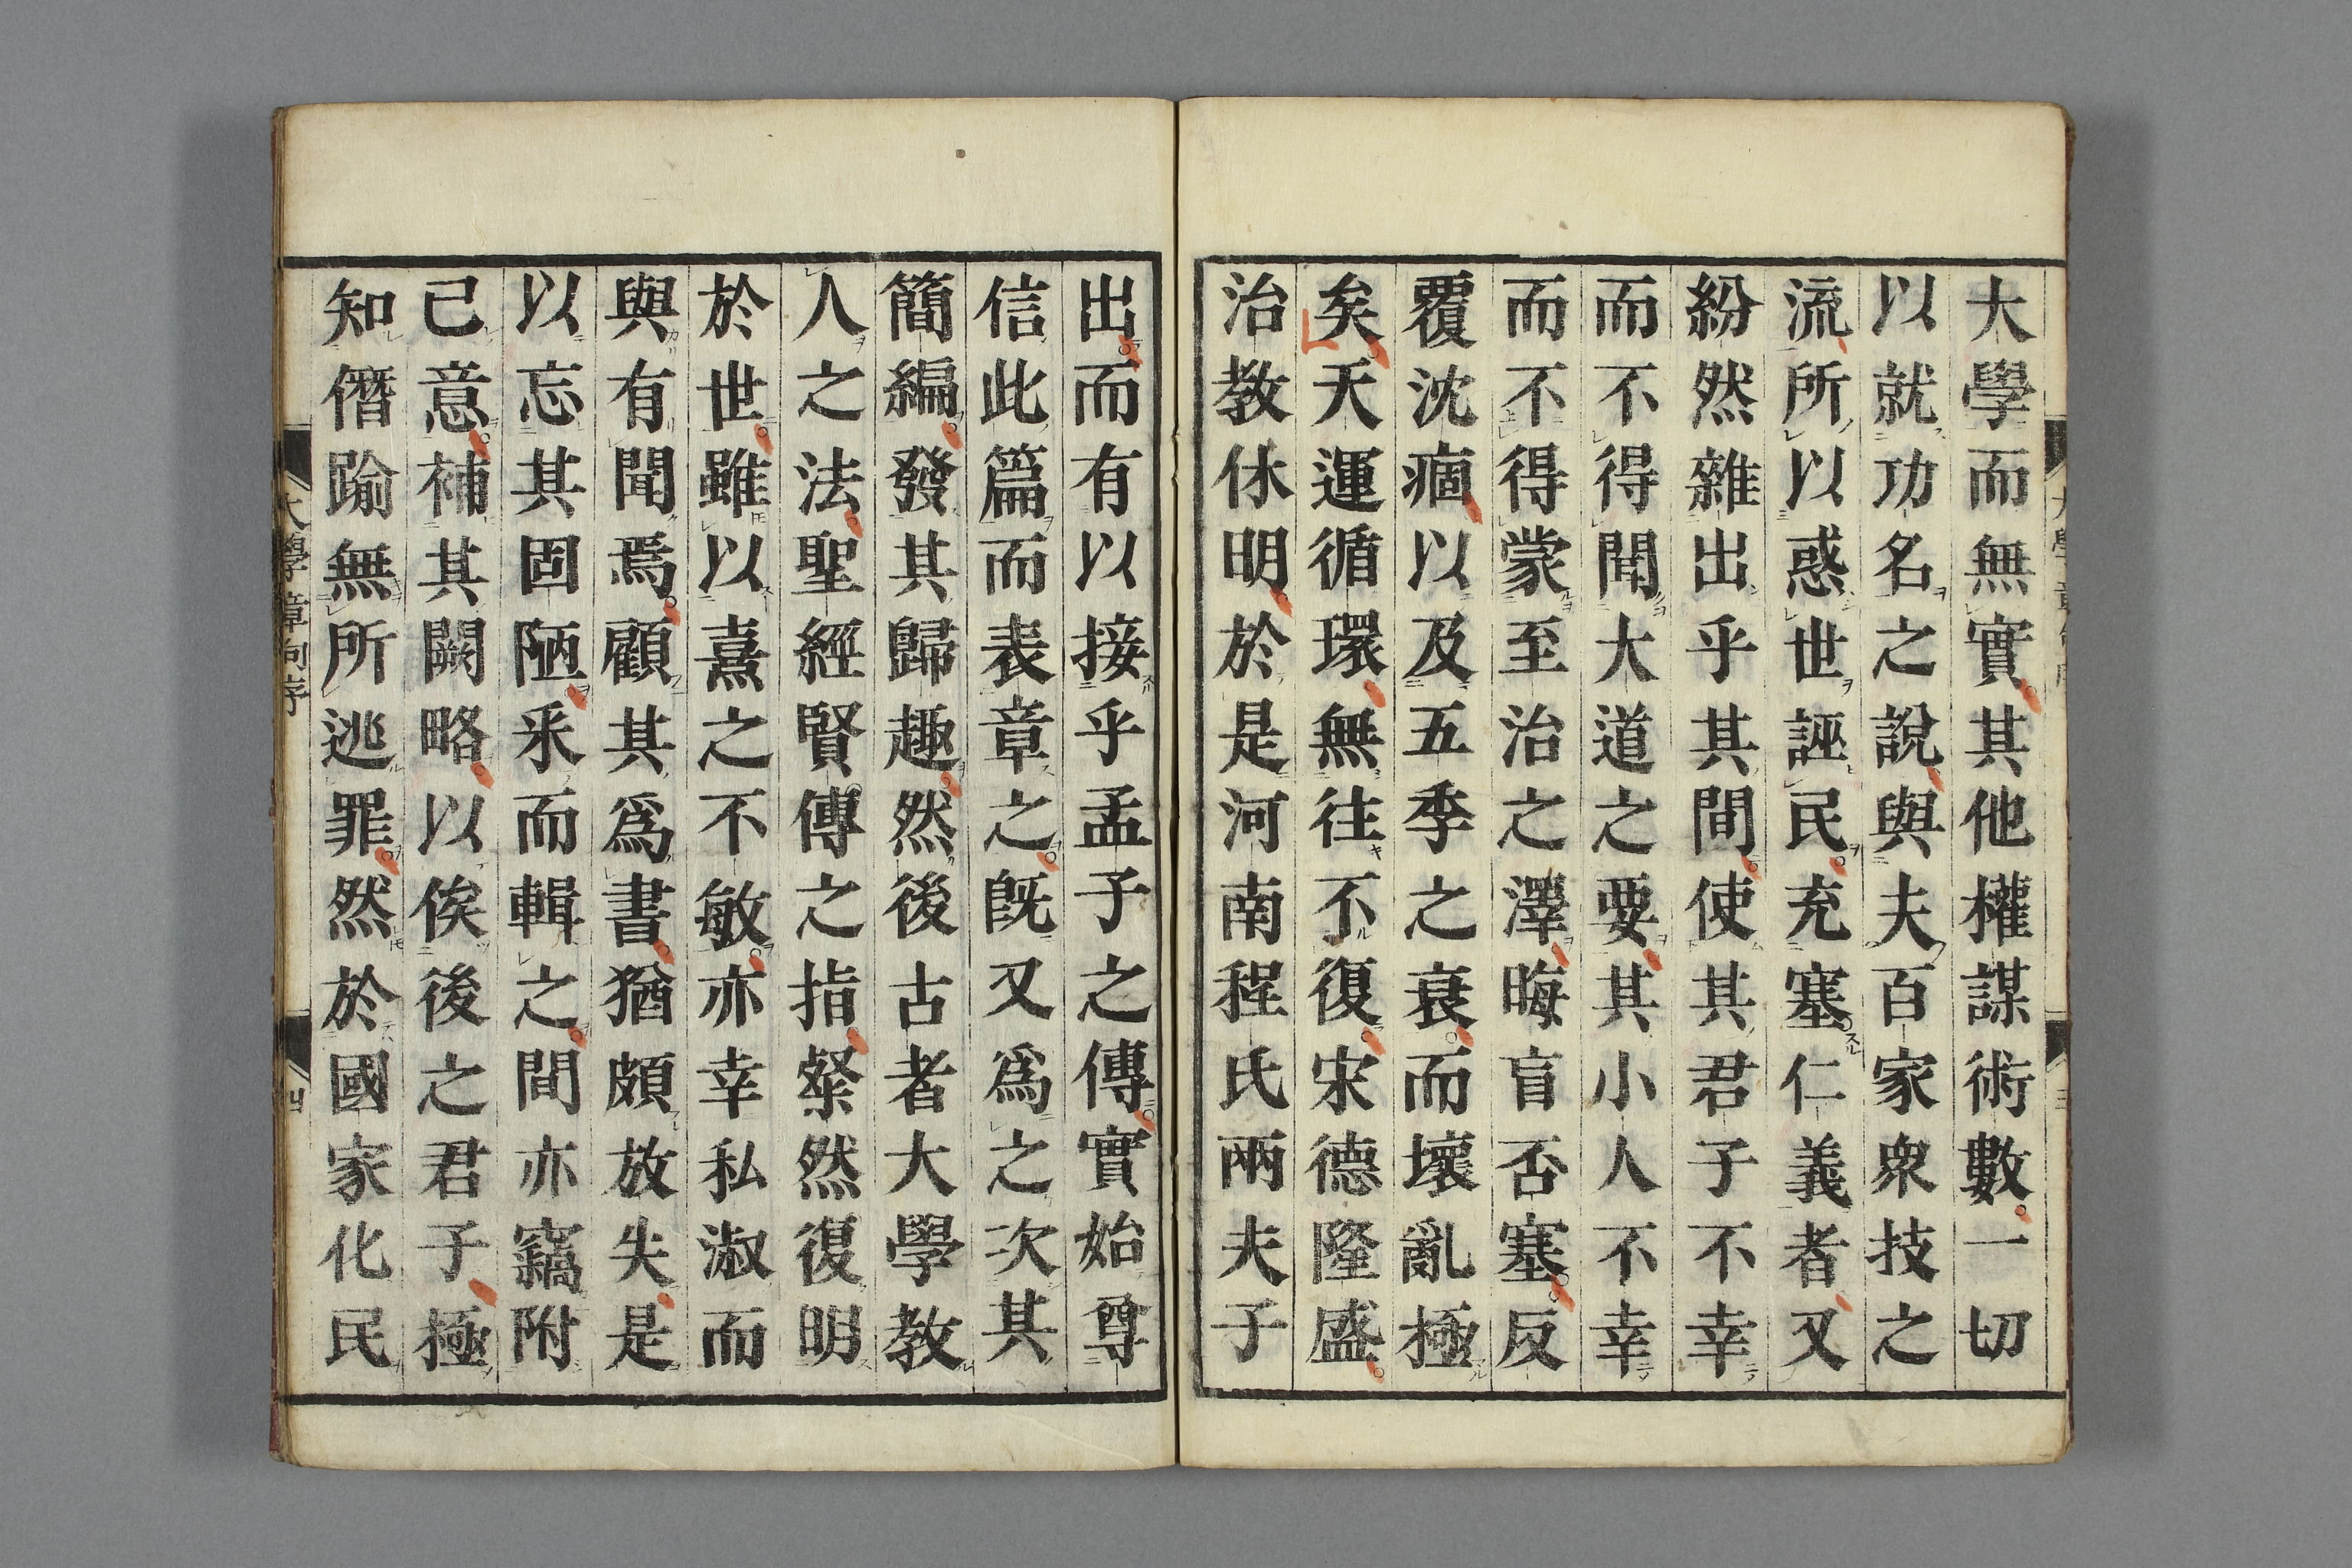 大學而無實其他權謀術數一切
以就功名之說與夫百家衆技之
流所以惑世誣民充塞仁義者又
紛然雜出乎其間使其君子不幸
而不得聞大道之要其小人不幸
而不得蒙至治之澤晦盲否塞反
覆沈痼以及五季之衰而壞亂極
矣天運循環無往不復宋德隆盛
治教休明於是河南程氏兩夫子
出而有以接乎孟子之傳實始尊
信此篇而表章之既又爲之次其
簡編發其歸趣然後古者大學教
人之法聖經賢傳之指粲然復明
於世雖以熹之不敏亦幸私淑而
與有聞焉顧其爲書猶頗放失是
以忘其固陋釆而輯之間亦竊附
己意補其闕略以俟後之君子極
知僭踰無所逃罪然於國家化民
大學章句序